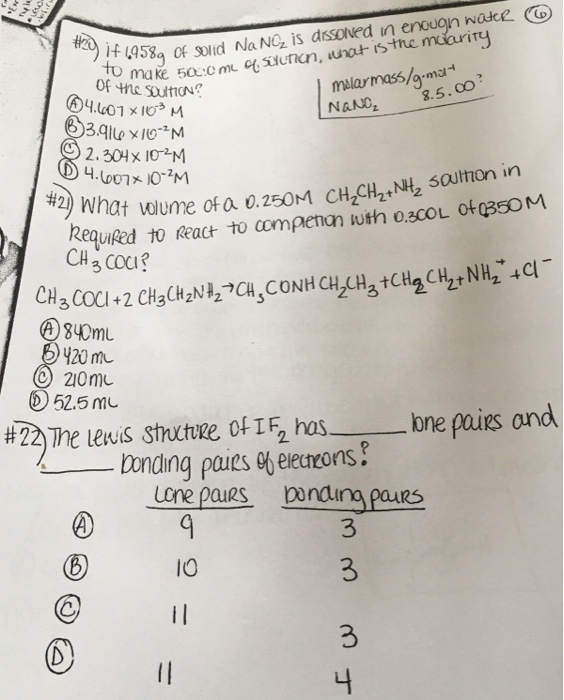 6
#20) if 1.958g of solid NaNO₂ is dissolved in enough water
to make 500.0 mL of solution, what is the molarity
Of the solution?
molar mass/g·mol⁻¹
NaNO₂ 8.5.00?
(A) 4.607 x 10⁻³ M
(B) 3.916 x 10⁻² M
(C) 2.304 x 10⁻² M
(D) 4.607 x 10⁻² M
#21) What volume of a 0.250M CH₂CH₂+NH₂ solution in
Required to React to completion with 0.300L of 0.350M
CH₃COCl?
CH₃COCl + 2 CH₃CH₂NH₂ → CH₃CONHCH₂CH₃ + CH₃CH₂+NH₂⁺ + Cl⁻
(A) 840mL
(B) 420 mL
(C) 210mL
(D) 52.5 mL
#22) The lewis structure of IF₂ has ______ lone pairs and
______ bonding pairs of electrons?
Lone pairs bonding pairs
(A) 9 3
(B) 10 3
(C) 11 3
(D) 11 4